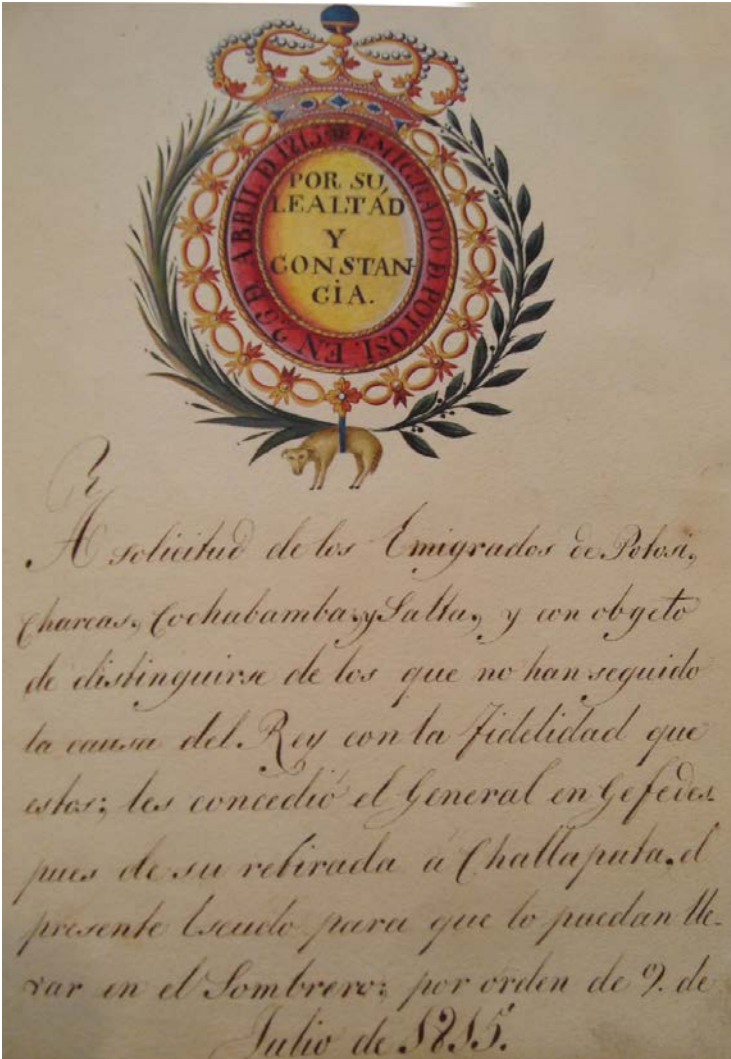 EMIGRADO D POTOSÍ. EN 25 D ABRÍL D 1815
POR SU
LEALTÁD
Y
CONSTAN
CÍA.
A solicitud de los Emigrados de Potosi,
Charcas, Cochabamba, y Salta, y con obgeto
de distinguirse de los que no han seguido
la causa del Rey con la Fidelidad que
estos; les concedió el General en Gefe des-
pues de su retirada á Challapata, el
presente Escudo para que lo puedan lle-
var en el Sombrero; por orden de 9. de
Julio de 1815.